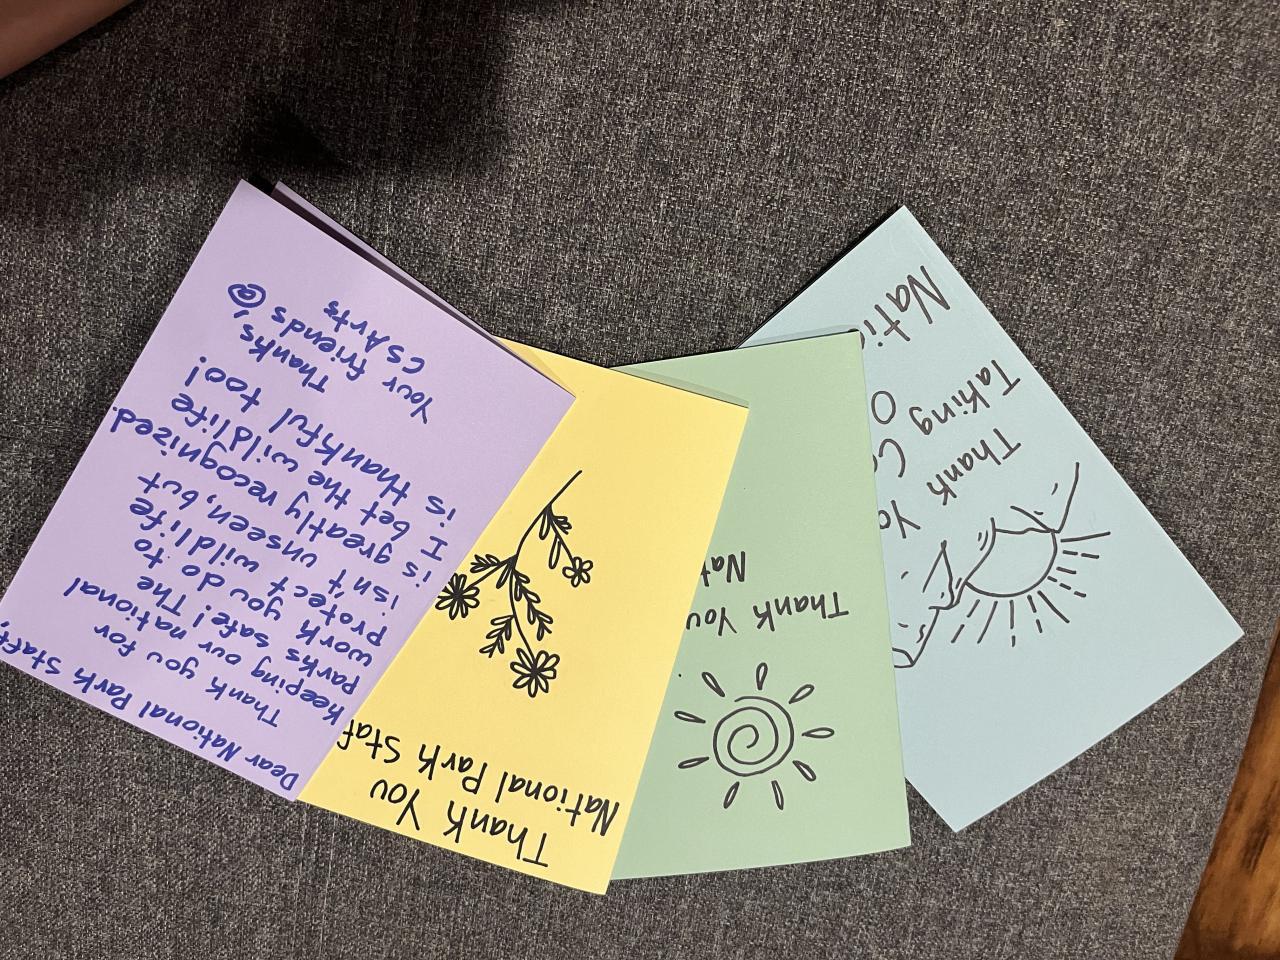 Thank Yo
Taking C
O
Nati
Thank You
Nat
Thank You
National Park Staf
Dear National Park Staff,
Thank you for
keeping our national
parks safe! The
work you do to
protect wildlife
isn't unseen, but
is greatly recognized.
I bet the wildlife
is thankful too!
Thanks,
Your friends @
CS Arts